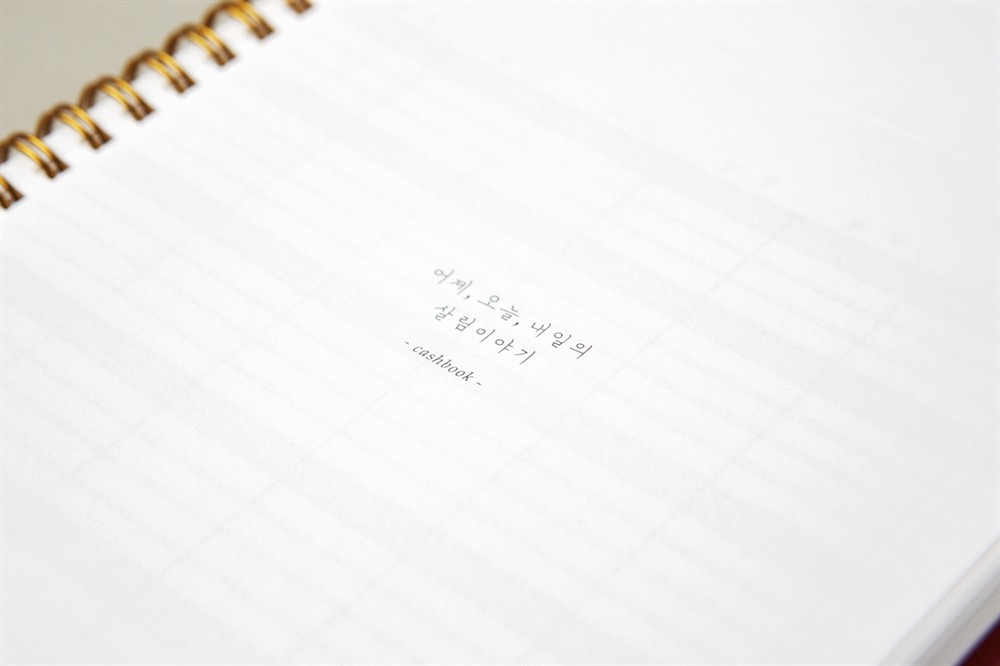 어제, 오늘, 내일의
살림이야기
- cashbook -